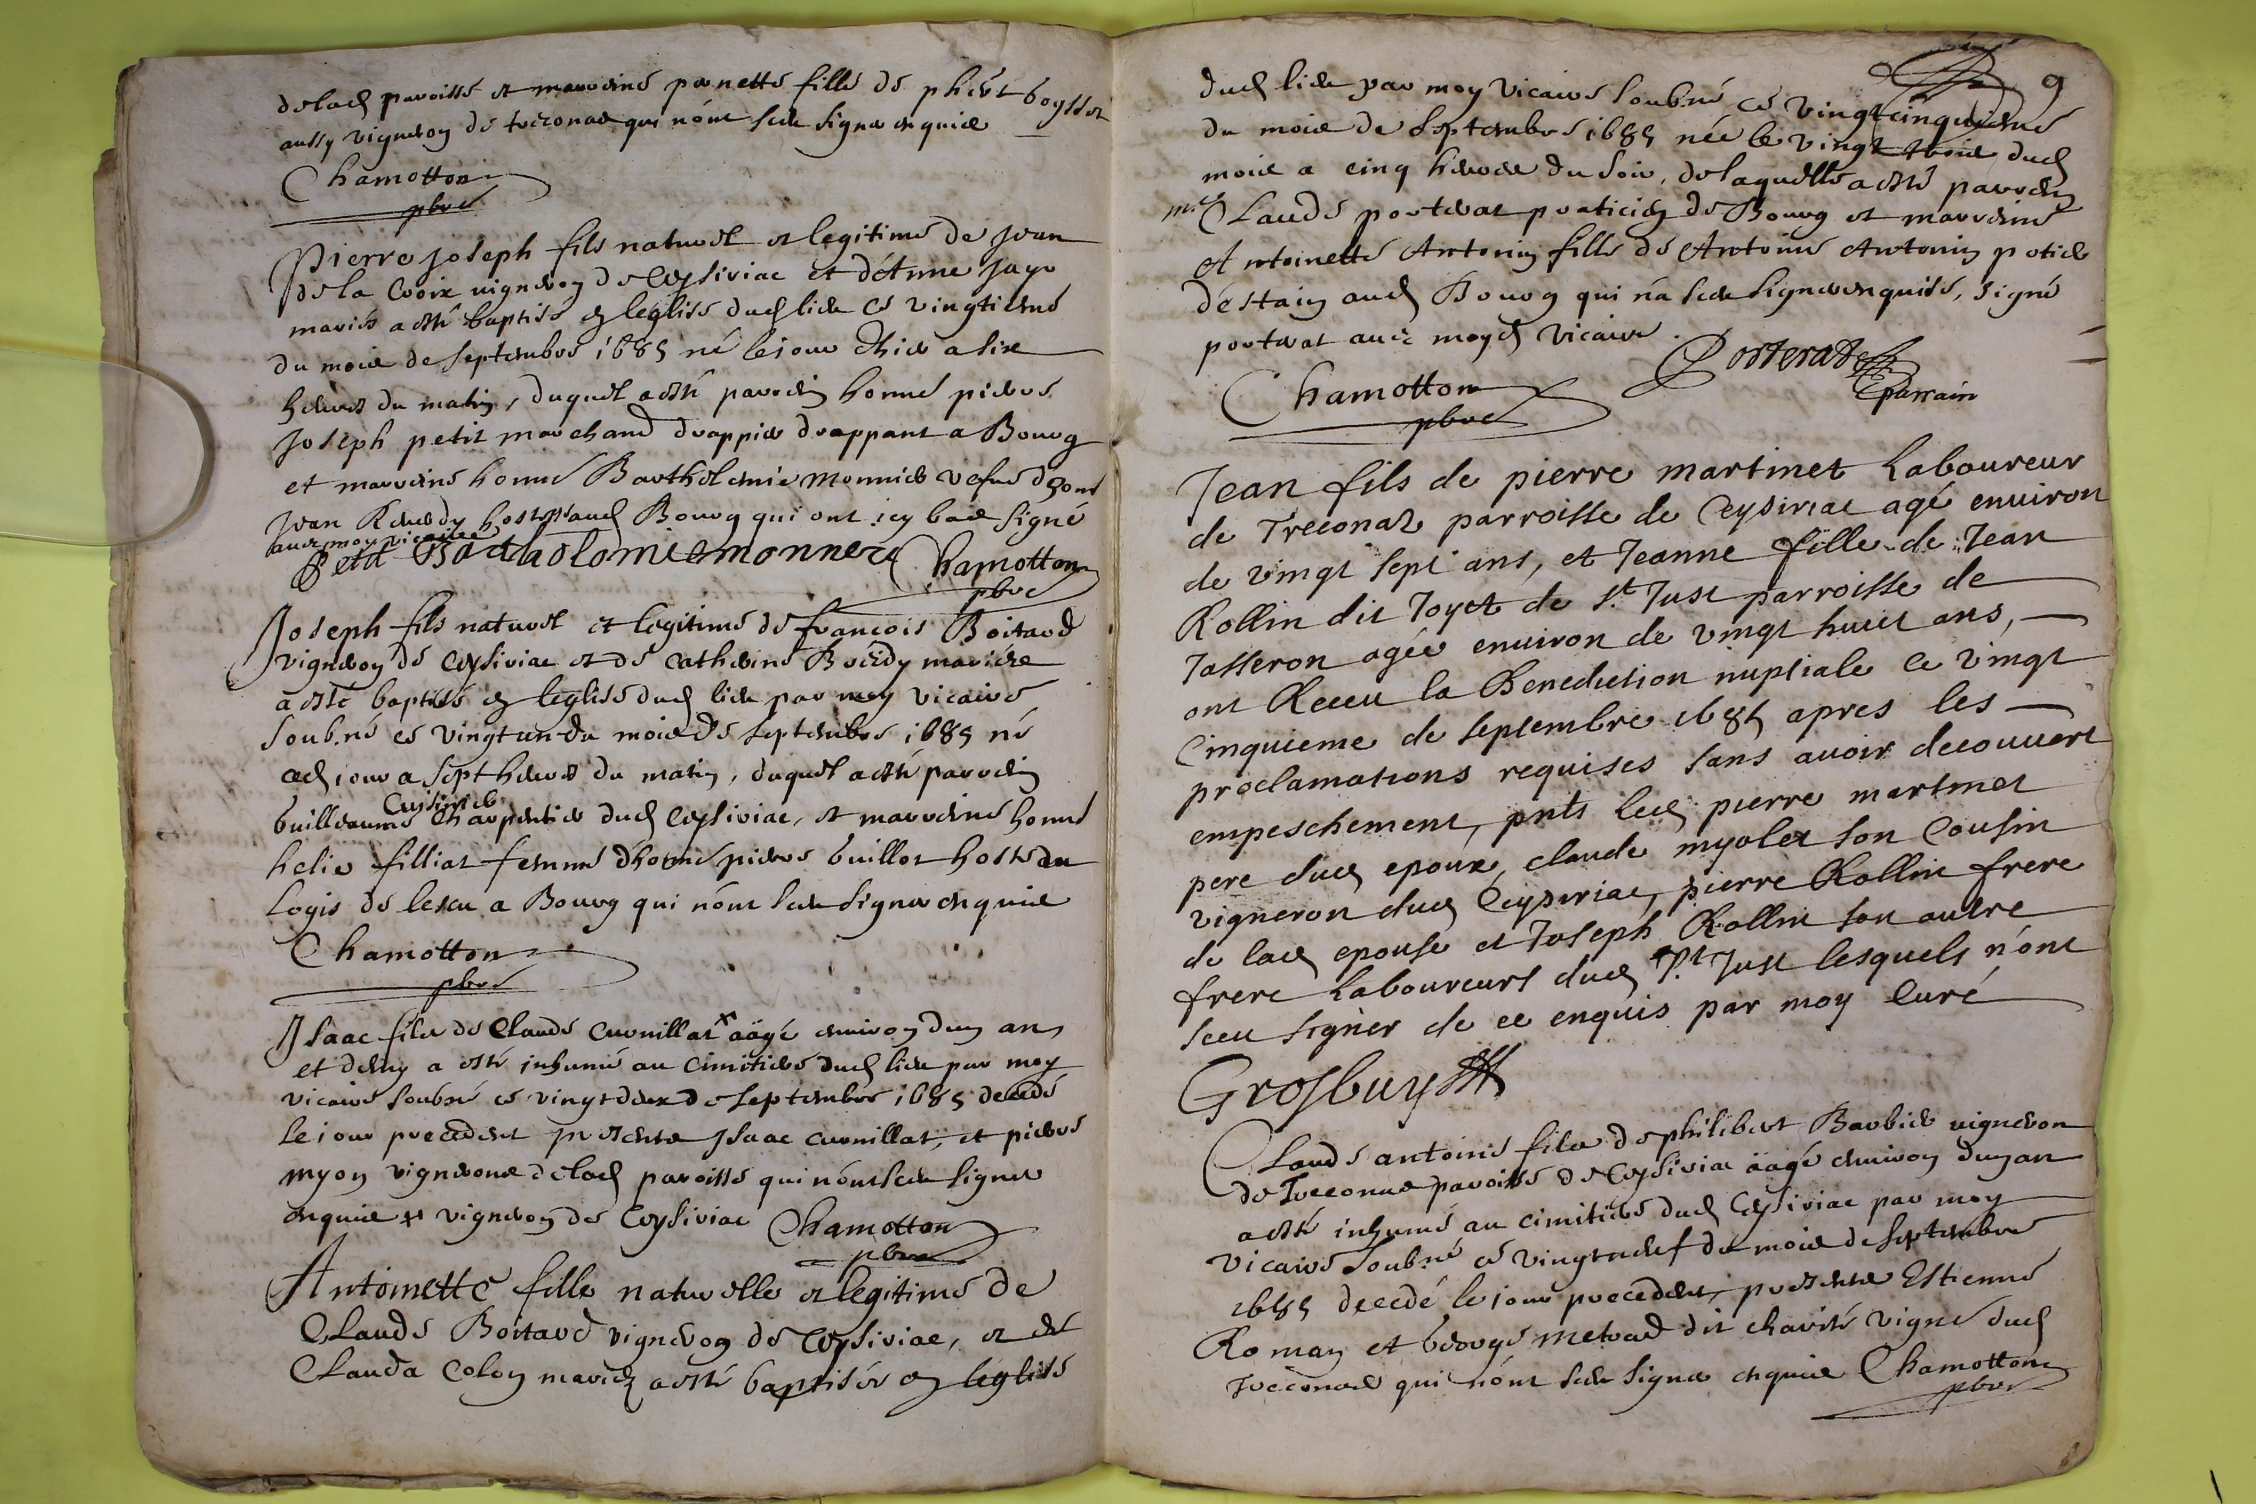 delad parroisse et marreine pernette fille de phibert boysson
aussy vigneron de treconas qui n'ont sceu signer enquis
Chamotton
pbre
Pierre joseph fils naturel et legitime de jean
de la Croix vigneron de Ceysiriac et d'Anne jayr
mariés a esté baptisé en leglise dud lieu ce vingtieme
du mois de septembre 1685 né le jour d'hier a six
heures du matin, duquel a esté parrein honn pierre
joseph petit marchand drappier drappant a Bourg
et marreine honn Barthelemie monnier vefve d'hon
jean hoste aud Bourg qui ont icy bas signé
avec moy vicaire
Petit Barthelomie monnere Chamotton
pbre
Joseph fils naturel et legitime de francois Boitard
vigneron de Ceysiriac et de Catherine mariés
a esté baptisé en leglise dud lieu par moy vicaire
soub.né ce vingt un du mois de septembre 1685 né
ced jour a sept heures du matin, duquel a esté parrein
Cuisinier
Guilleaume Charpentier dud Ceysiriac, et marreine honn
helie filliat femme d'hon pierre Guillot hoste du
Logis de lescu a Bourg qui n'ont sceu signer enquis
Chamotton
pbre
Isaac fils de Claude Curnillat x aägé environ dun an
et demy a esté inhumé au Cimitiere dud lieu par moy
vicaire soubné ce vingt deux de septembre 1685 decedé
le jour precedent presents Isaac curnillat, et pierre
myon vignerons delad paroisse qui n'ont sceu signer
enquis x vigneron de Ceysiriac Chamotton
pbre
Antoinette fille naturelle et legitime de
Claude Boitard vigneron de Ceysiriac, et de
Clauda Colon mariés a esté baptisée en leglise
9
dud lieu par moy vicaire soub.né ce vingtcinquieme
du mois de septembre 1685 née le vingt trois dud
mois a cinq heures du soir, de laquelle a esté parrein
me Claude porterat praticien de Bourg et marreine
Antoinette Antonin fille de Antoine Antonin potier
d'estain aud Bourg qui n'a sceu signer enquise, signé
porterat avec moyd vicaire.
Porterat
Chamotton parrain
pbre
Jean fils de pierre martinet Laboureur
de Treconaz parroisse de Ceysiriac agé environ
de vingt sept ans, et Jeanne fille de Jean
Rollin dit Joyet de St. Just parroisse de
Jasseron agée environ de vingt huit ans,
ont Receu la Benediction nuptiale ce vingt
Cinquieme de septembre 1685 apres les
proclamations requises sans avoir decouvert
empeschement, pnts led pierre martinet
pere dud epoux, claude myolet son Cousin
vigneron dud Ceysiriac, pierre Rollin frere
de lad epouse et Joseph Rollin son autre
frere Laboureurs dud St. Just lesquels n'ont
sceu signer de ce enquis par moy Curé
Grosbuy
Claude antoine fils de philibert Barbier vigneron
de Treconas paroisse de Ceysiriac aägé environ dun an
a esté inhumé au cimitiere dud Ceysiriac par moy
vicaire soubné ce vingtneuf du mois de septembre
1685 decedé le jour precedent, presents Estienne
Roman et George metrad dit charité vigne dud
Treconas qui n'ont sceu signer enquis Chamotton
pbre